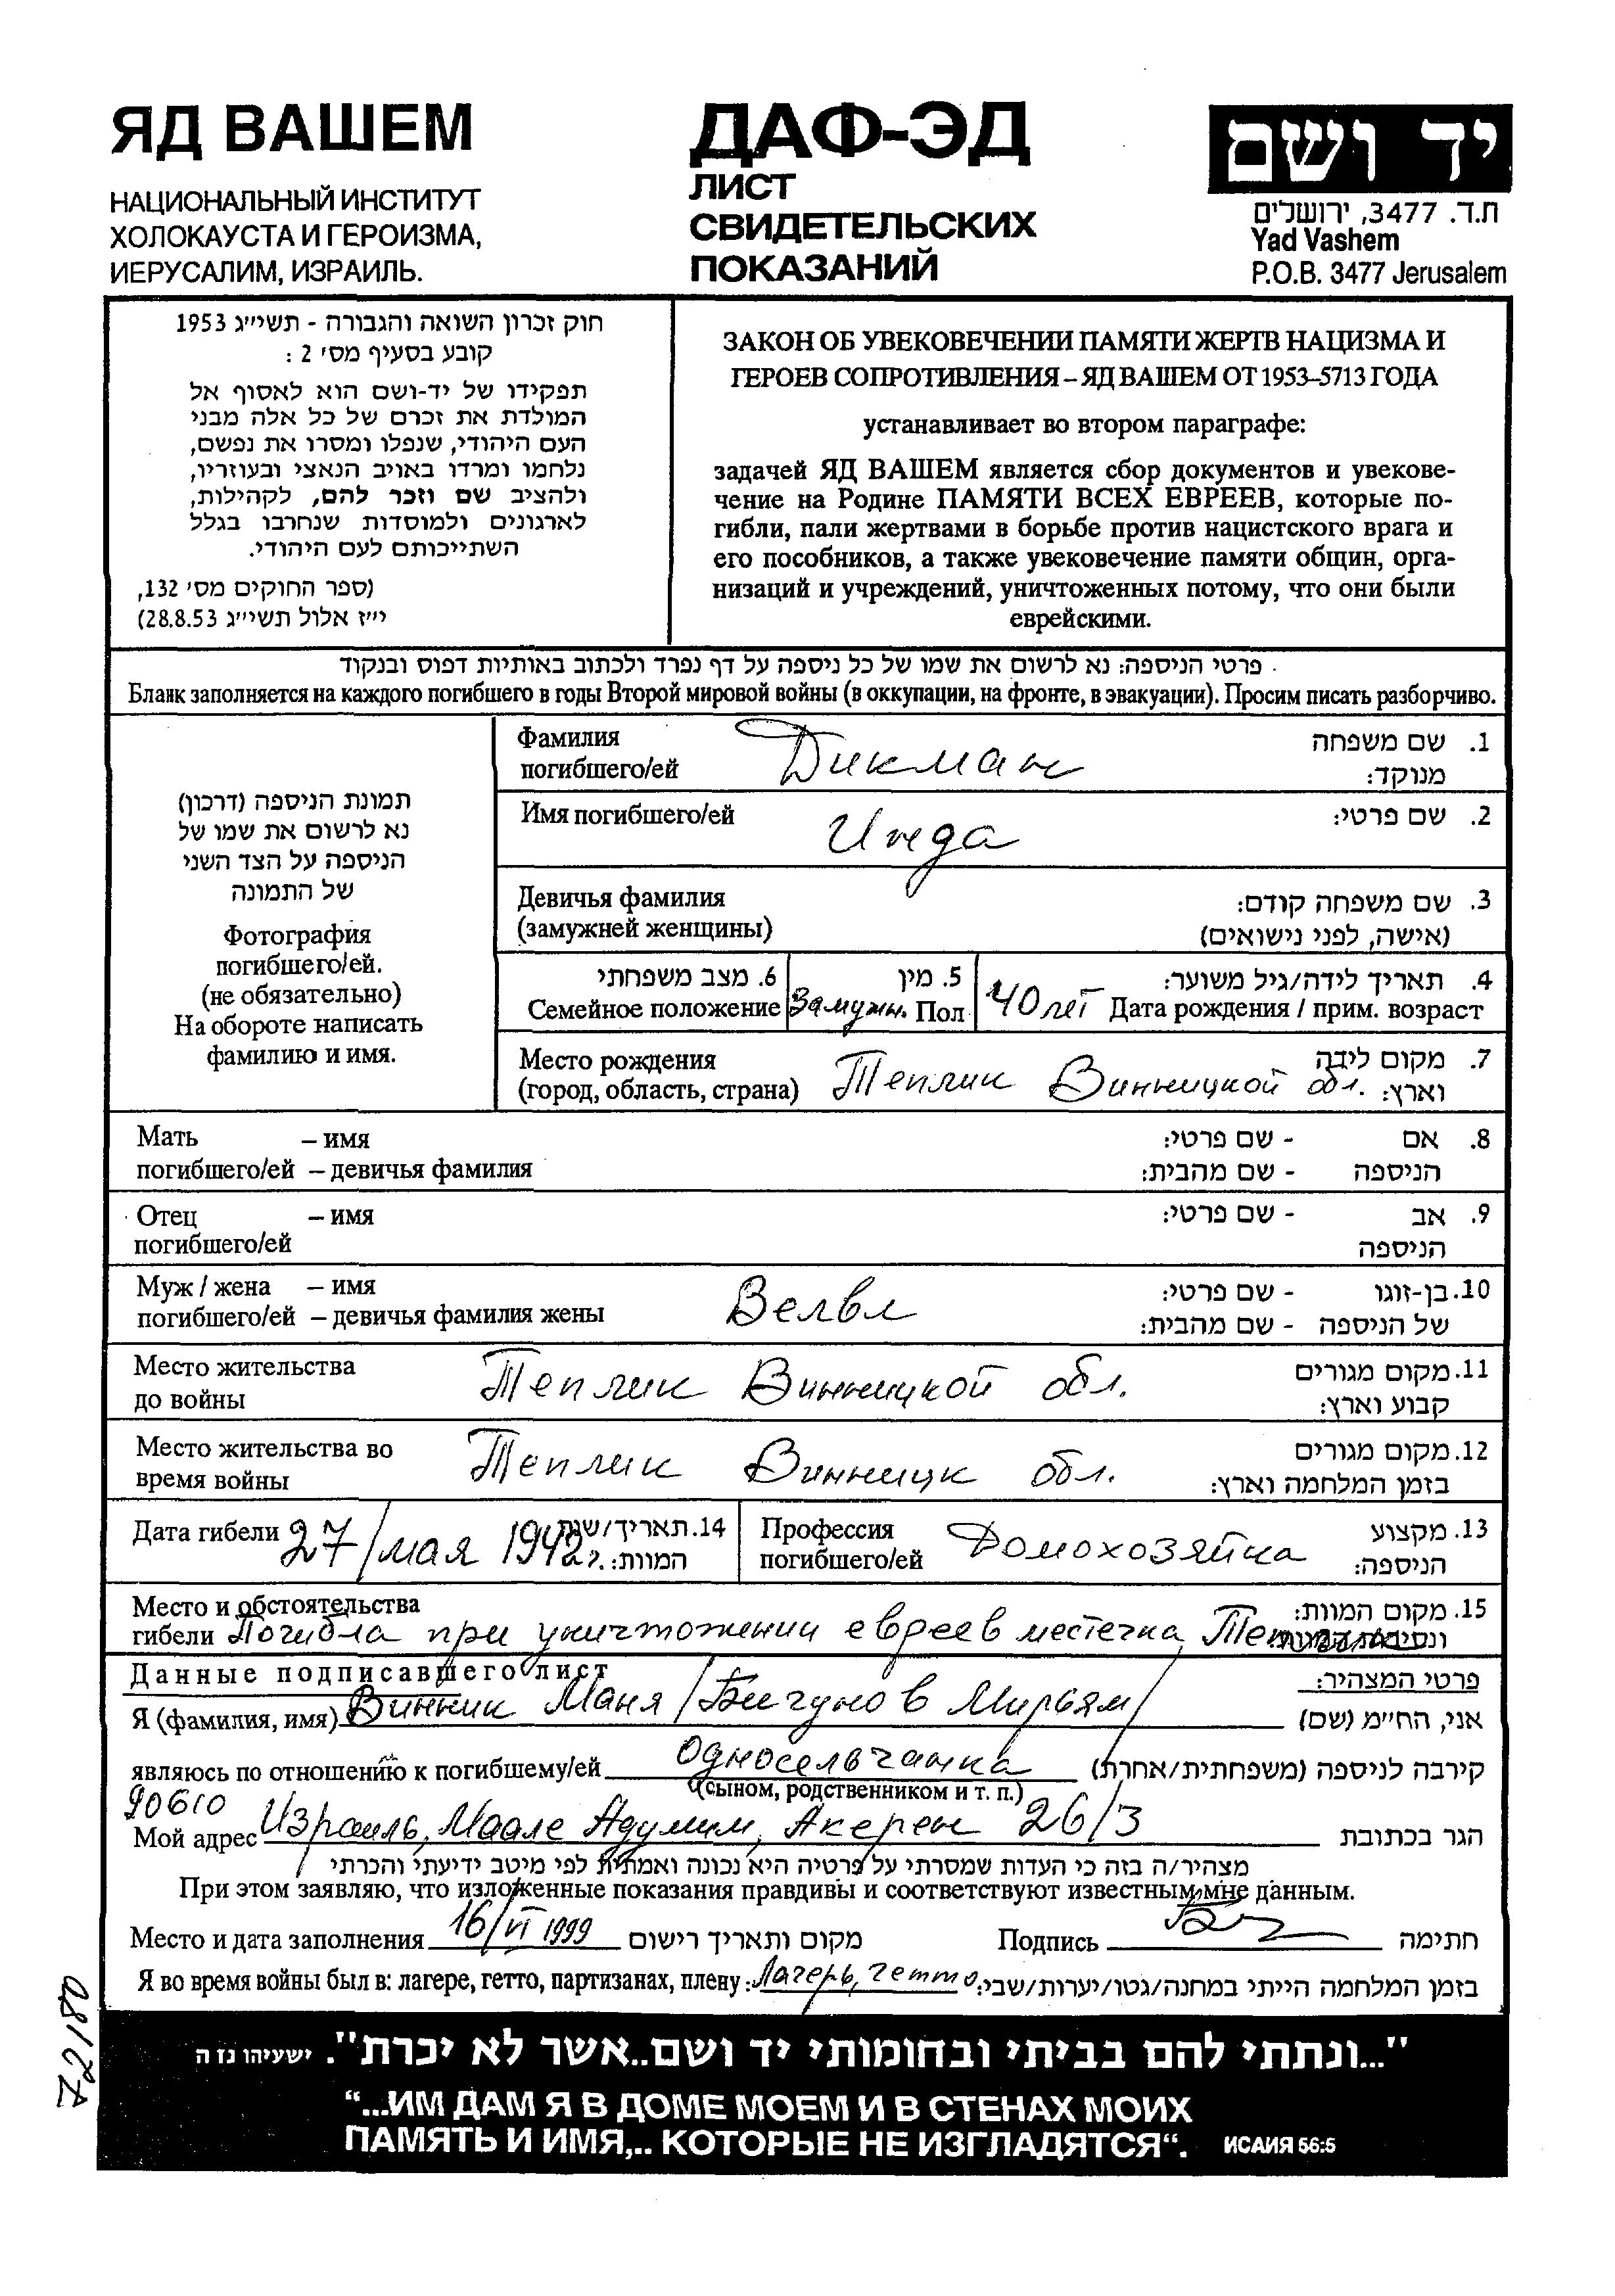 ЯД ВАШЕМ
НАЦИОНАЛЬНЫЙ ИНСТИТУТ
ХОЛОКАУСТА И ГЕРОИЗМА,
ИЕРУСАЛИМ, ИЗРАИЛЬ.
ДАФ-ЭД
ЛИСТ
СВИДЕТЕЛЬСКИХ
ПОКАЗАНИЙ
יד ושם
ת.ד. 3477, ירושלים
Yad Vashem
P.O.B. 3477 Jerusalem
חוק זכרון השואה והגבורה - תשי״ג 1953
קובע בסעיף מס׳ 2 :
תפקידו של יד-ושם הוא לאסוף אל
המולדת את זכרם של כל אלה מבני
העם היהודי, שנפלו ומסרו את נפשם,
נלחמו ומרדו באויב הנאצי ובעוזריו,
ולהציב שם וזכר להם, לקהילות,
לארגונים ולמוסדות שנחרבו בגלל
השתייכותם לעם היהודי.
(ספר החוקים מס׳ 132,
י״ז אלול תשי״ג 28.8.53)
ЗАКОН ОБ УВЕКОВЕЧЕНИИ ПАМЯТИ ЖЕРТВ НАЦИЗМА И
ГЕРОЕВ СОПРОТИВЛЕНИЯ – ЯД ВАШЕМ ОТ 1953–5713 ГОДА
устанавливает во втором параграфе:
задачей ЯД ВАШЕМ является сбор документов и увекове-
чение на Родине ПАМЯТИ ВСЕХ ЕВРЕЕВ, которые по-
гибли, пали жертвами в борьбе против нацистского врага и
его пособников, а также увековечение памяти общин, орга-
низаций и учреждений, уничтоженных потому, что они были
еврейскими.
פרטי הניספה: נא לרשום את שמו של כל ניספה על דף נפרד ולכתוב באותיות דפוס ובנקוד
Бланк заполняется на каждого погибшего в годы Второй мировой войны (в оккупации, на фронте, в эвакуации). Просим писать разборчиво.
תמונת הניספה (דרכון)
נא לרשום את שמו של
הניספה על הצד השני
של התמונה
Фотография
погибшего/ей.
(не обязательно)
На обороте написать
фамилию и имя.
Фамилия Дикман 1. שם משפחה
погибшего/ей מנוקד:
Имя погибшего/ей Инда 2. שם פרטי:
Девичья фамилия 3. שם משפחה קודם:
(замужней женщины) (אישה, לפני נישואים)
6. מצב משפחתי 5. מין 4. תאריך לידה/גיל משוער:
Семейное положение Замужн. Пол 40 лет Дата рождения / прим. возраст
Место рождения 7. מקום לידה
(город, область, страна) Теплик Винницкой обл. וארץ:
Мать – имя 8. אם - שם פרטי:
погибшего/ей – девичья фамилия הניספה - שם מהבית:
Отец – имя 9. אב - שם פרטי:
погибшего/ей הניספה
Муж / жена – имя Велвл 10. בן-זוגו - שם פרטי:
погибшего/ей – девичья фамилия жены של הניספה - שם מהבית:
Место жительства Теплик Винницкой обл. 11. מקום מגורים
до войны קבוע וארץ:
Место жительства во Теплик Винницк обл. 12. מקום מגורים
время войны בזמן המלחמה וארץ:
Дата гибели 27/мая 1942 г. 14. תאריך/שנת
המוות:
Профессия Домохозяйка 13. מקצוע
погибшего/ей הניספה:
Место и обстоятельства 15. מקום המוות:
гибели Погибла при уничтожении евреев местечка
Данные подписавшего лист פרטי המצהיר:
Я (фамилия, имя) Винник Маня /Бигунов Мирьям/ אני, הח״מ (שם)
являюсь по отношению к погибшему/ей Односельчанка קירבה לניספה (משפחתית/אחרת)
(сыном, родственником и т. п.)
90610
Мой адрес Израиль, Маале Адумим, Акерен 26/3 הגר בכתובת
מצהיר/ה בזה כי העדות שמסרתי על פרטיה היא נכונה ואמתית לפי מיטב ידיעתי והכרתי
При этом заявляю, что изложенные показания правдивы и соответствуют известным мне данным.
Место и дата заполнения 16/VI 1999 מקום ותאריך רישום Подпись חתימה
Я во время войны был в: лагере, гетто, партизанах, плену: Лагерь, гетто בזמן המלחמה הייתי במחנה/גטו/יערות/שבי:
"...ונתתי להם בביתי ובחומותי יד ושם..אשר לא יכרת". ישעיהו נז ה
“...ИМ ДАМ Я В ДОМЕ МОЕМ И В СТЕНАХ МОИХ
ПАМЯТЬ И ИМЯ,.. КОТОРЫЕ НЕ ИЗГЛАДЯТСЯ“. ИСАИЯ 56:5